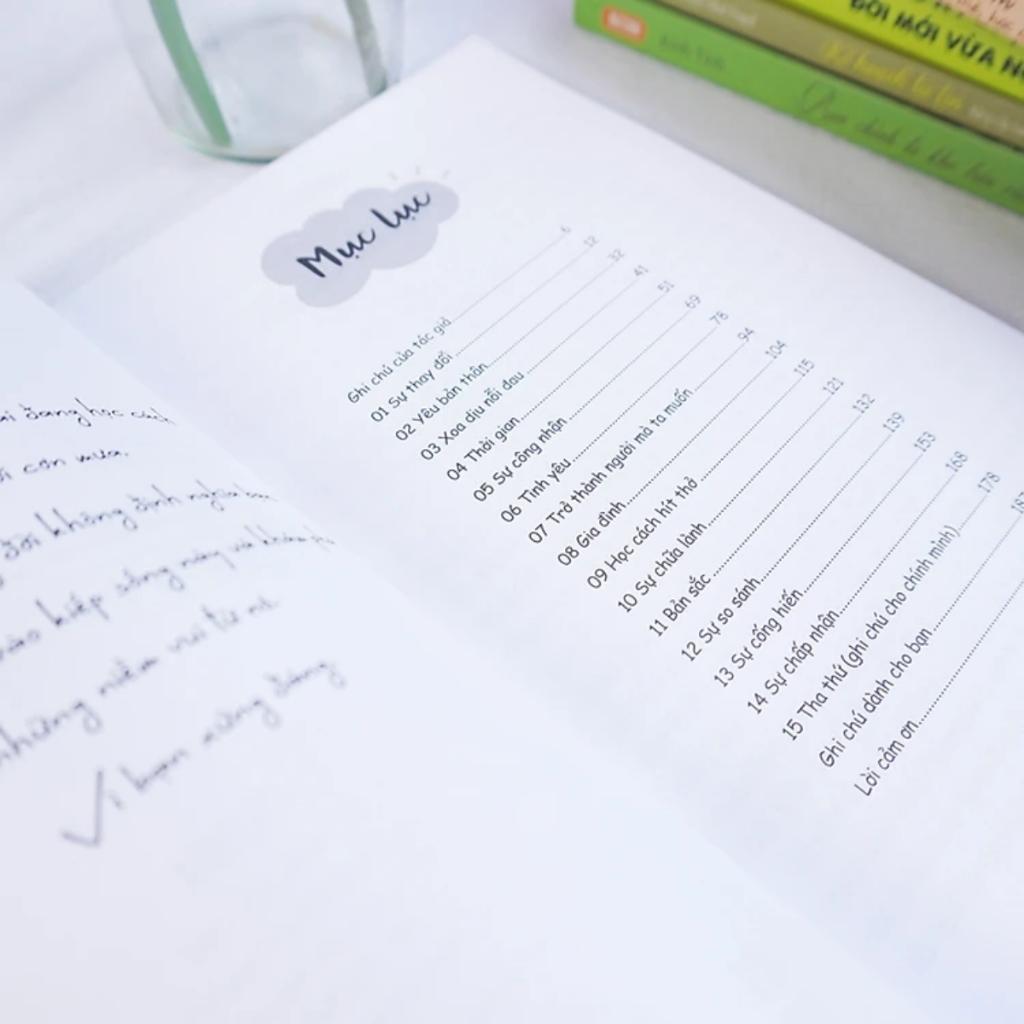 đang học cách
cơn mưa.
đời không định nghĩa bạn
kiếp sống này và
những niềm vui từ
Vì bạn xứng đáng
Mục lục
Ghi chú của tác giả 6
01 Sự thay đổi 12
02 Yêu bản thân 32
03 Xoa dịu nỗi đau 41
04 Thời gian 51
05 Sự công nhận 69
06 Tình yêu 78
07 Trở thành người mà ta muốn 94
08 Gia đình 104
09 Học cách hít thở 115
10 Sự chữa lành 121
11 Bản sắc 132
12 Sự so sánh 139
13 Sự cống hiến 153
14 Sự chấp nhận 168
15 Tha thứ (ghi chú cho chính mình) 178
Ghi chú dành cho bạn
Lời cảm ơn
BỜI MỚI VỪA